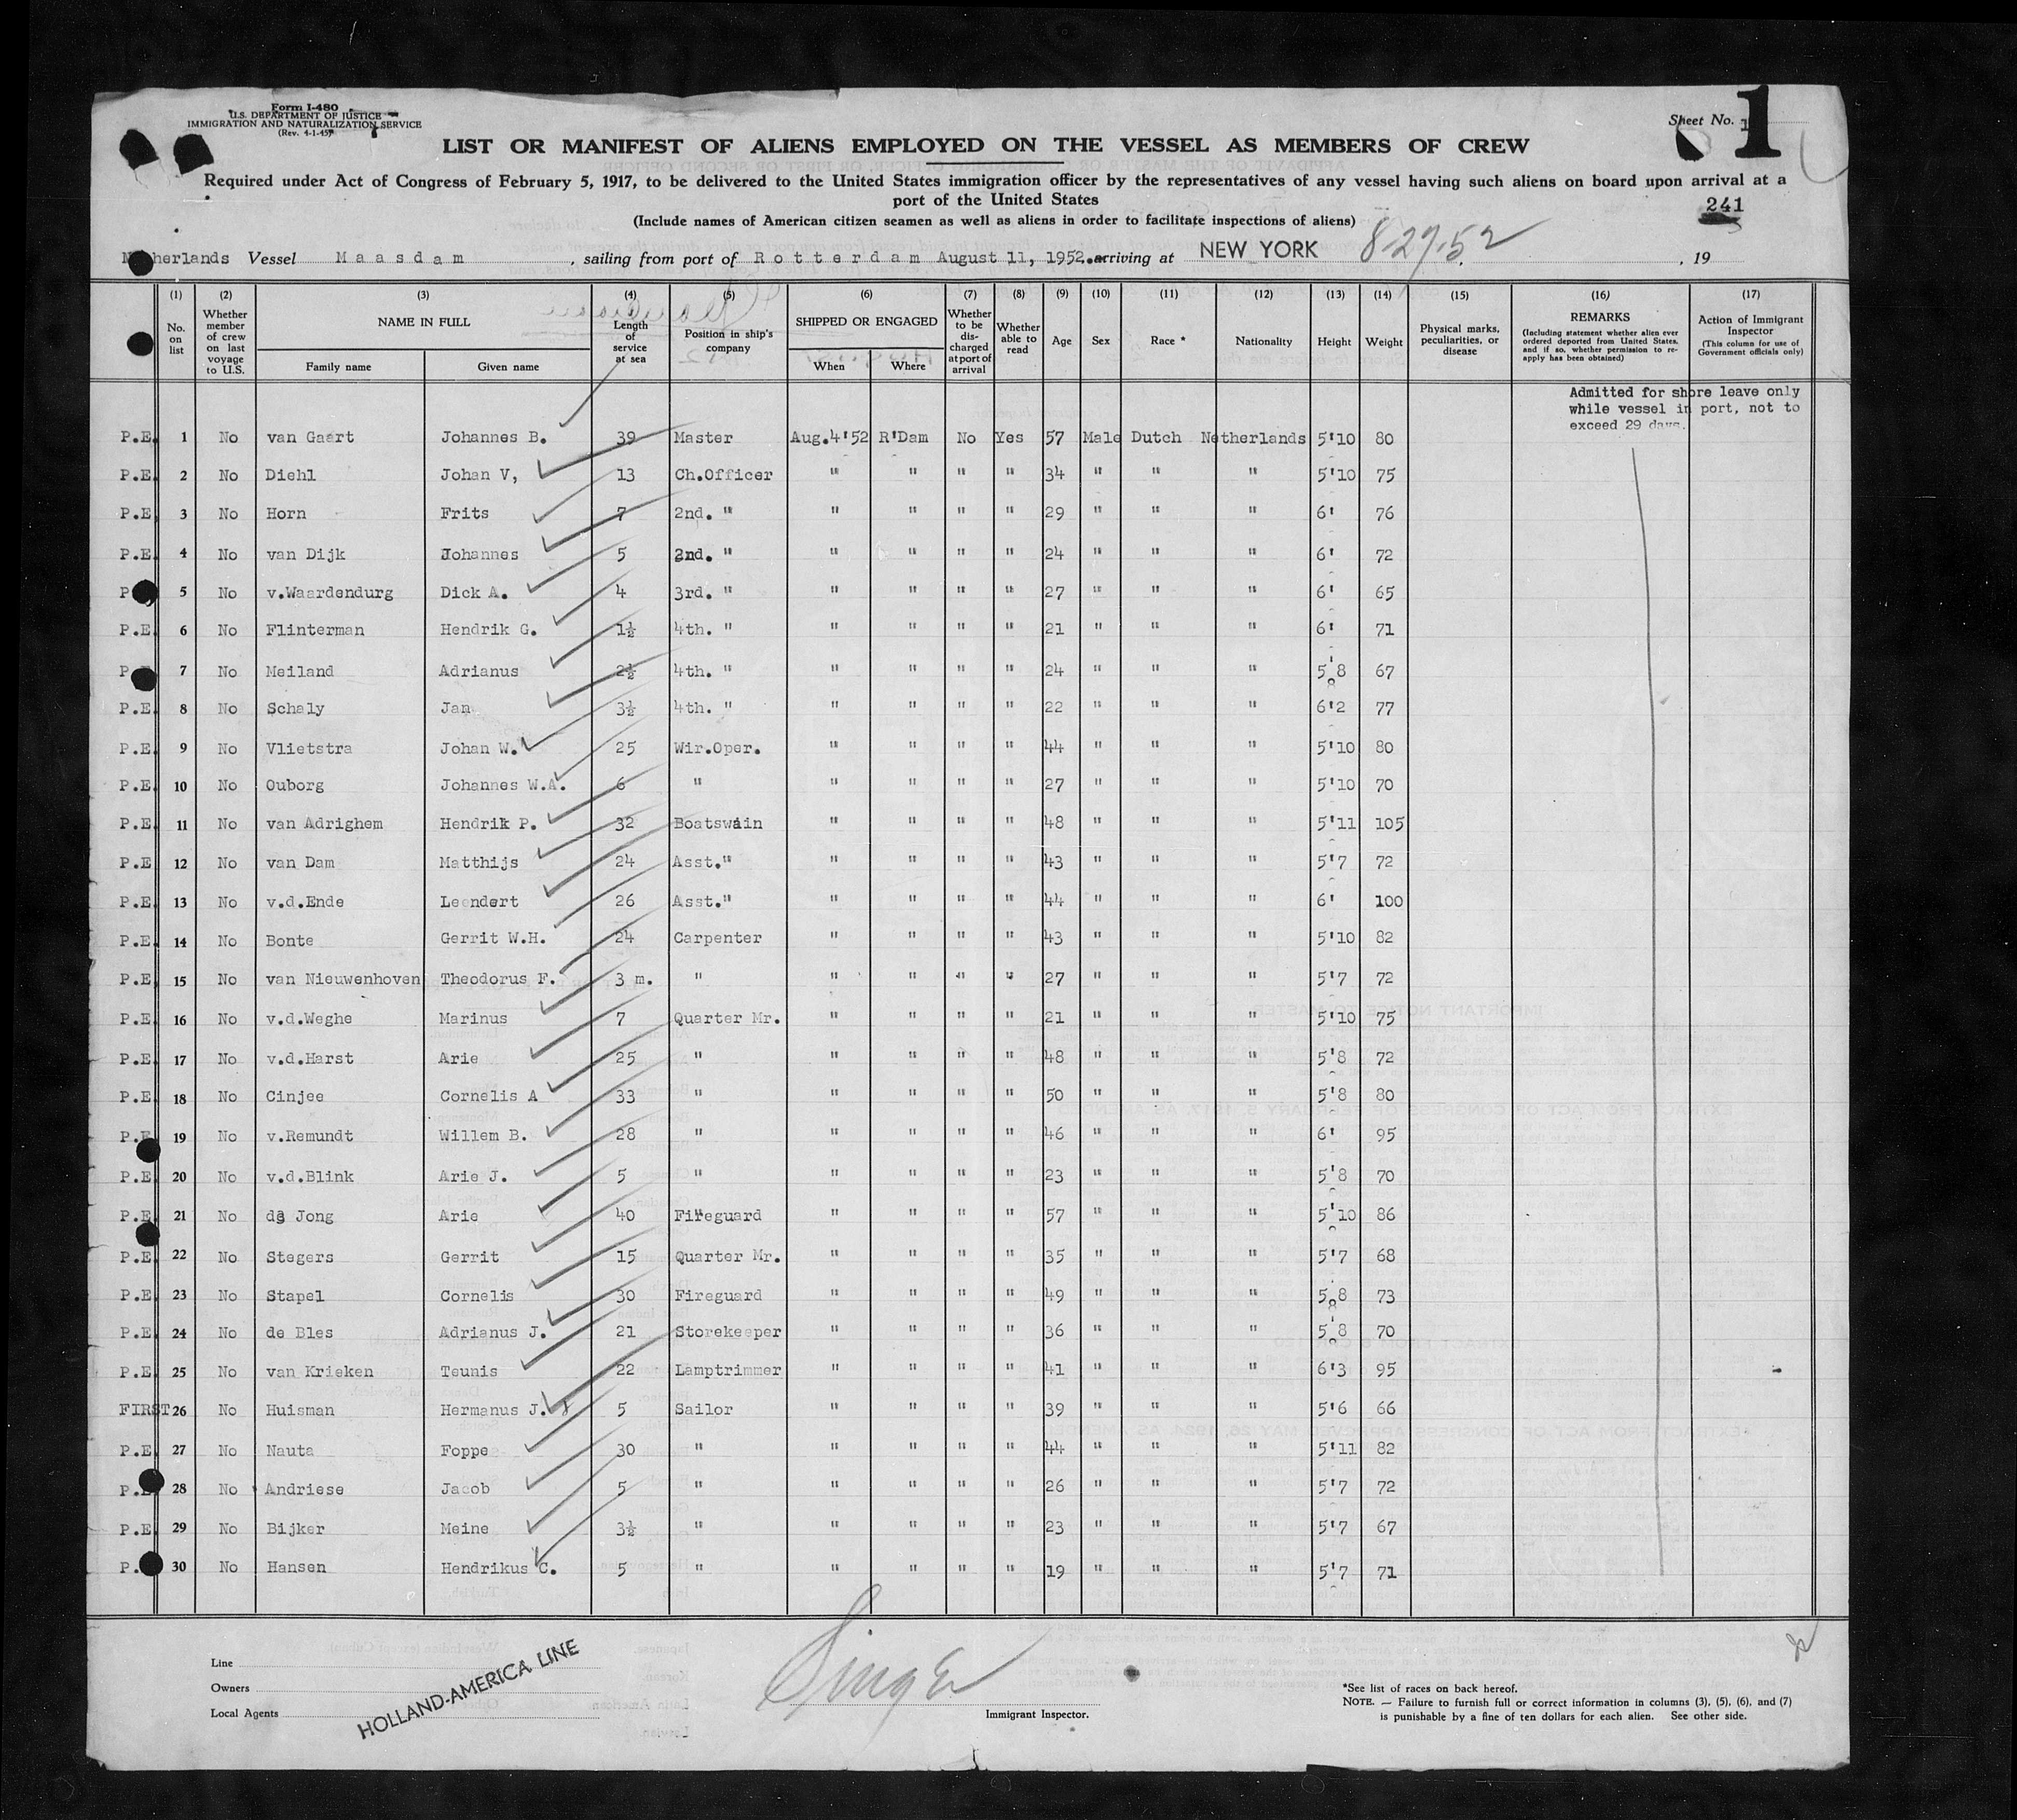 Form I-480
U.S. DEPARTMENT OF JUSTICE
IMMIGRATION AND NATURALIZATION SERVICE
(Rev. 4-1-45)
Sheet No. 1
1
LIST OR MANIFEST OF ALIENS EMPLOYED ON THE VESSEL AS MEMBERS OF CREW
Required under Act of Congress of February 5, 1917, to be delivered to the United States immigration officer by the representatives of any vessel having such aliens on board upon arrival at a
port of the United States
241
(Include names of American citizen seamen as well as aliens in order to facilitate inspections of aliens)
Netherlands Vessel Maasdam, sailing from port of Rotterdam August 11, 1952. arriving at NEW YORK 8-27-52, 19
(1) (2) (3) (4) (5) (6) (7) (8) (9) (10) (11) (12) (13) (14) (15) (16) (17)
No. on list Whether member of crew on last voyage to U.S. NAME IN FULL Family name Given name Length of service at sea Position in ship's company SHIPPED OR ENGAGED When Where Whether to be discharged at port of arrival Whether able to read Age Sex Race * Nationality Height Weight Physical marks, peculiarities, or disease REMARKS (Including statement whether alien ever ordered deported from United States, and if so, whether permission to re-apply has been obtained) Action of Immigrant Inspector (This column for use of Government officials only)
Admitted for shore leave only
while vessel in port, not to
exceed 29 days.
P.E. 1 No van Gaart Johannes B. 39 Master Aug.4'52 R'Dam No Yes 57 Male Dutch Netherlands 5'10 80
P.E. 2 No Diehl Johan V, 13 Ch.Officer " " " " 34 " " " 5'10 75
P.E. 3 No Horn Frits 7 2nd. " " " " " 29 " " " 6' 76
P.E. 4 No van Dijk Johannes 5 2nd. " " " " " 24 " " " 6' 72
P 5 No v.Waardendurg Dick A. 4 3rd. " " " " " 27 " " " 6' 65
P.E. 6 No Flinterman Hendrik G. 1½ 4th. " " " " " 21 " " " 6' 71
P 7 No Meiland Adrianus 2½ 4th. " " " " " 24 " " " 5'8 67
P.E. 8 No Schaly Jan 3½ 4th. " " " " " 22 " " " 6'2 77
P.E. 9 No Vlietstra Johan W. 25 Wir.Oper. " " " " 44 " " " 5'10 80
P.E. 10 No Ouborg Johannes W.A. 6 " " " " " 27 " " " 5'10 70
P.E. 11 No van Adrighem Hendrik P. 32 Boatswain " " " " 48 " " " 5'11 105
P.E 12 No van Dam Matthijs 24 Asst." " " " " 43 " " " 5'7 72
P.E. 13 No v.d.Ende Leendert 26 Asst." " " " " 44 " " " 6' 100
P.E. 14 No Bonte Gerrit W.H. 24 Carpenter " " " " 43 " " " 5'10 82
P.E. 15 No van Nieuwenhoven Theodorus F. 3 m. " " " " " 27 " " " 5'7 72
P.E. 16 No v.d.Weghe Marinus 7 Quarter Mr. " " " " 21 " " " 5'10 75
P.E. 17 No v.d.Harst Arie 25 " " " " " 48 " " " 5'8 72
P.E. 18 No Cinjee Cornelis A 33 " " " " " 50 " " " 5'8 80
P.E 19 No v.Remundt Willem B. 28 " " " " " 46 " " " 6' 95
P.E. 20 No v.d.Blink Arie J. 5 " " " " " 23 " " " 5'8 70
P.E. 21 No de Jong Arie 40 Fireguard " " " " 57 " " " 5'10 86
P.E. 22 No Stegers Gerrit 15 Quarter Mr. " " " " 35 " " " 5'7 68
P.E. 23 No Stapel Cornelis 30 Fireguard " " " " 49 " " " 5'8 73
P.E. 24 No de Bles Adrianus J. 21 Storekeeper " " " " 36 " " " 5'8 70
P.E. 25 No van Krieken Teunis 22 Lamptrimmer " " " " 41 " " " 6'3 95
FIRST 26 No Huisman Hermanus J. 5 Sailor " " " " 39 " " " 5'6 66
P.E. 27 No Nauta Foppe 30 " " " " " 44 " " " 5'11 82
P.E 28 No Andriese Jacob 5 " " " " " 26 " " " 5'7 72
P.E. 29 No Bijker Meine 3½ " " " " " 23 " " " 5'7 67
P. 30 No Hansen Hendrikus C. 5 " " " " " 19 " " " 5'7 71
Line
Owners
Local Agents
HOLLAND-AMERICA LINE
Singer
Immigrant Inspector.
*See list of races on back hereof.
NOTE. — Failure to furnish full or correct information in columns (3), (5), (6), and (7)
is punishable by a fine of ten dollars for each alien. See other side.